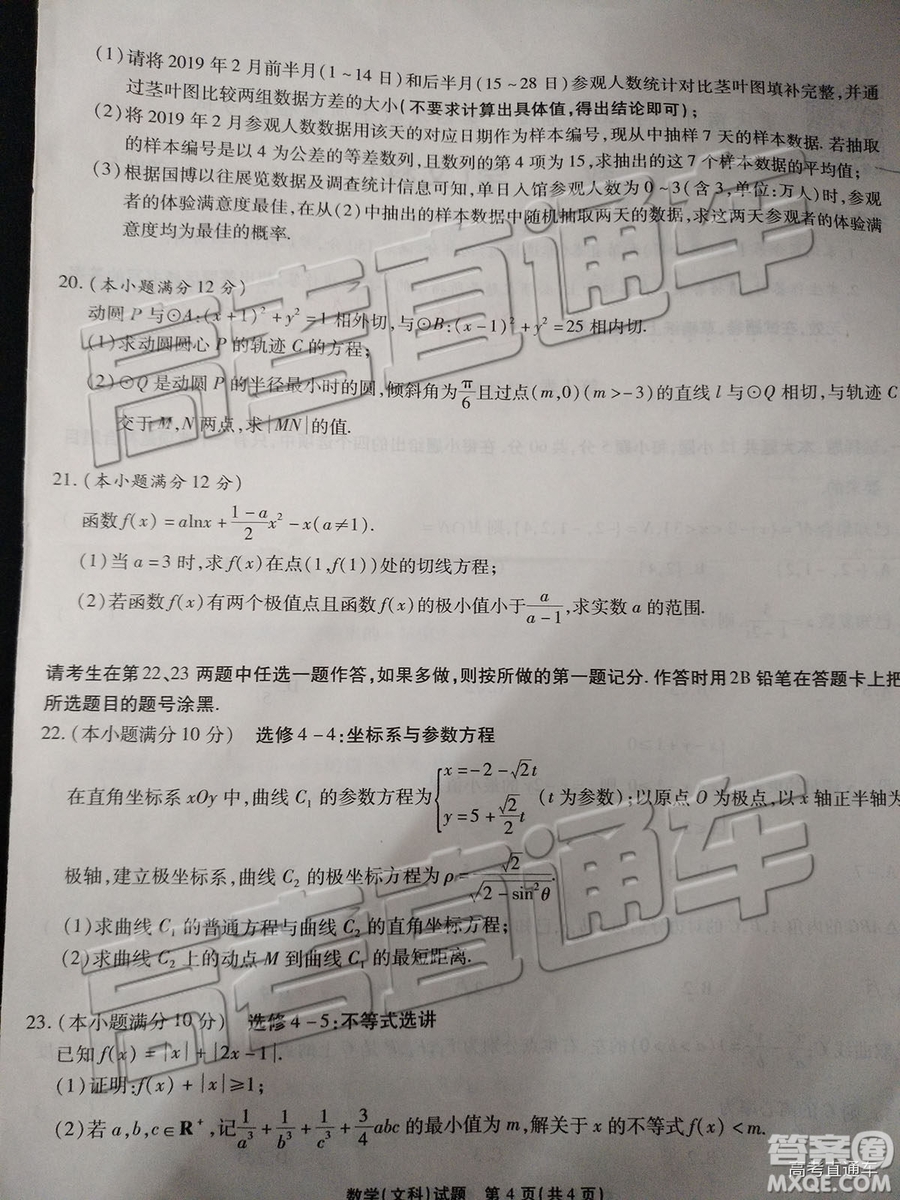 (1)请将 2019 年 2 月前半月(1~14 日)和后半月(15~28 日)参观人数统计对比茎叶图填补完整,并通
过茎叶图比较两组数据方差的大小(不要求计算出具体值,得出结论即可);
(2)将 2019 年 2 月参观人数数据用该天的对应日期作为样本编号,现从中抽样 7 天的样本数据.若抽取
的样本编号是以 4 为公差的等差数列,且数列的第 4 项为 15,求抽出的这 7 个样本数据的平均值;
(3)根据国博以往展览数据及调查统计信息可知,单日入馆参观人数为 0~3(含 3,单位:万人)时,参观
者的体验满意度最佳,在从(2)中抽出的样本数据中随机抽取两天的数据,求这两天参观者的体验满
意度均为最佳的概率.
20.(本小题满分 12 分)
动圆 P 与⊙A:(x+1)²+y²=1 相外切,与⊙B:(x-1)²+y²=25 相内切.
(1)求动圆圆心 P 的轨迹 C 的方程;
(2)⊙Q 是动圆 P 的半径最小时的圆,倾斜角为π/6且过点(m,0)(m>-3)的直线 l 与⊙Q 相切,与轨迹 C
交于 M,N 两点,求|MN|的值.
21.(本小题满分 12 分)
函数f(x)=alnx+(1-a)/2 x²-x(a≠1).
(1)当 a=3 时,求 f(x)在点(1,f(1))处的切线方程;
(2)若函数 f(x)有两个极值点且函数 f(x)的极小值小于a/(a-1),求实数 a 的范围.
请考生在第 22、23 两题中任选一题作答,如果多做,则按所做的第一题记分.作答时用 2B 铅笔在答题卡上把
所选题目的题号涂黑.
22.(本小题满分 10 分) 选修 4-4:坐标系与参数方程
在直角坐标系 xOy 中,曲线 C₁ 的参数方程为{x=-2-√2t y=5+√2/2 t (t 为参数);以原点 O 为极点,以 x 轴正半轴为
极轴,建立极坐标系,曲线 C₂ 的极坐标方程为ρ=√2/√(2-sin²θ).
(1)求曲线 C₁ 的普通方程与曲线 C₂ 的直角坐标方程;
(2)求曲线 C₂ 上的动点 M 到曲线 C₁ 的最短距离.
23.(本小题满分 10 分) 选修 4-5:不等式选讲
已知 f(x)=|x|+|2x-1|.
(1)证明:f(x)+|x|≥1;
(2)若 a,b,c∈R⁺,记1/a³+1/b³+1/c³+3/4 abc 的最小值为 m,解关于 x 的不等式 f(x)<m.
数学(文科)试题 第 4 页(共 4 页)
高考直通车
高考直通车
答案圈
高考直通车
MXQE.COM